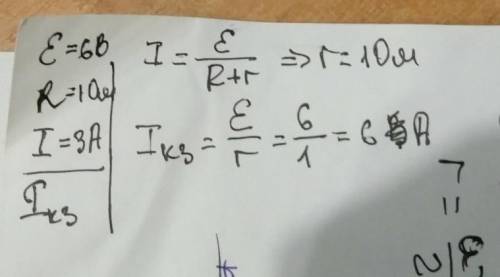 ε = 6В
R = 1Ом
I = 3А
Iкз
I = ε / (R + r) => r = 1Ом
Iкз = ε / r = 6 / 1 = 6 А